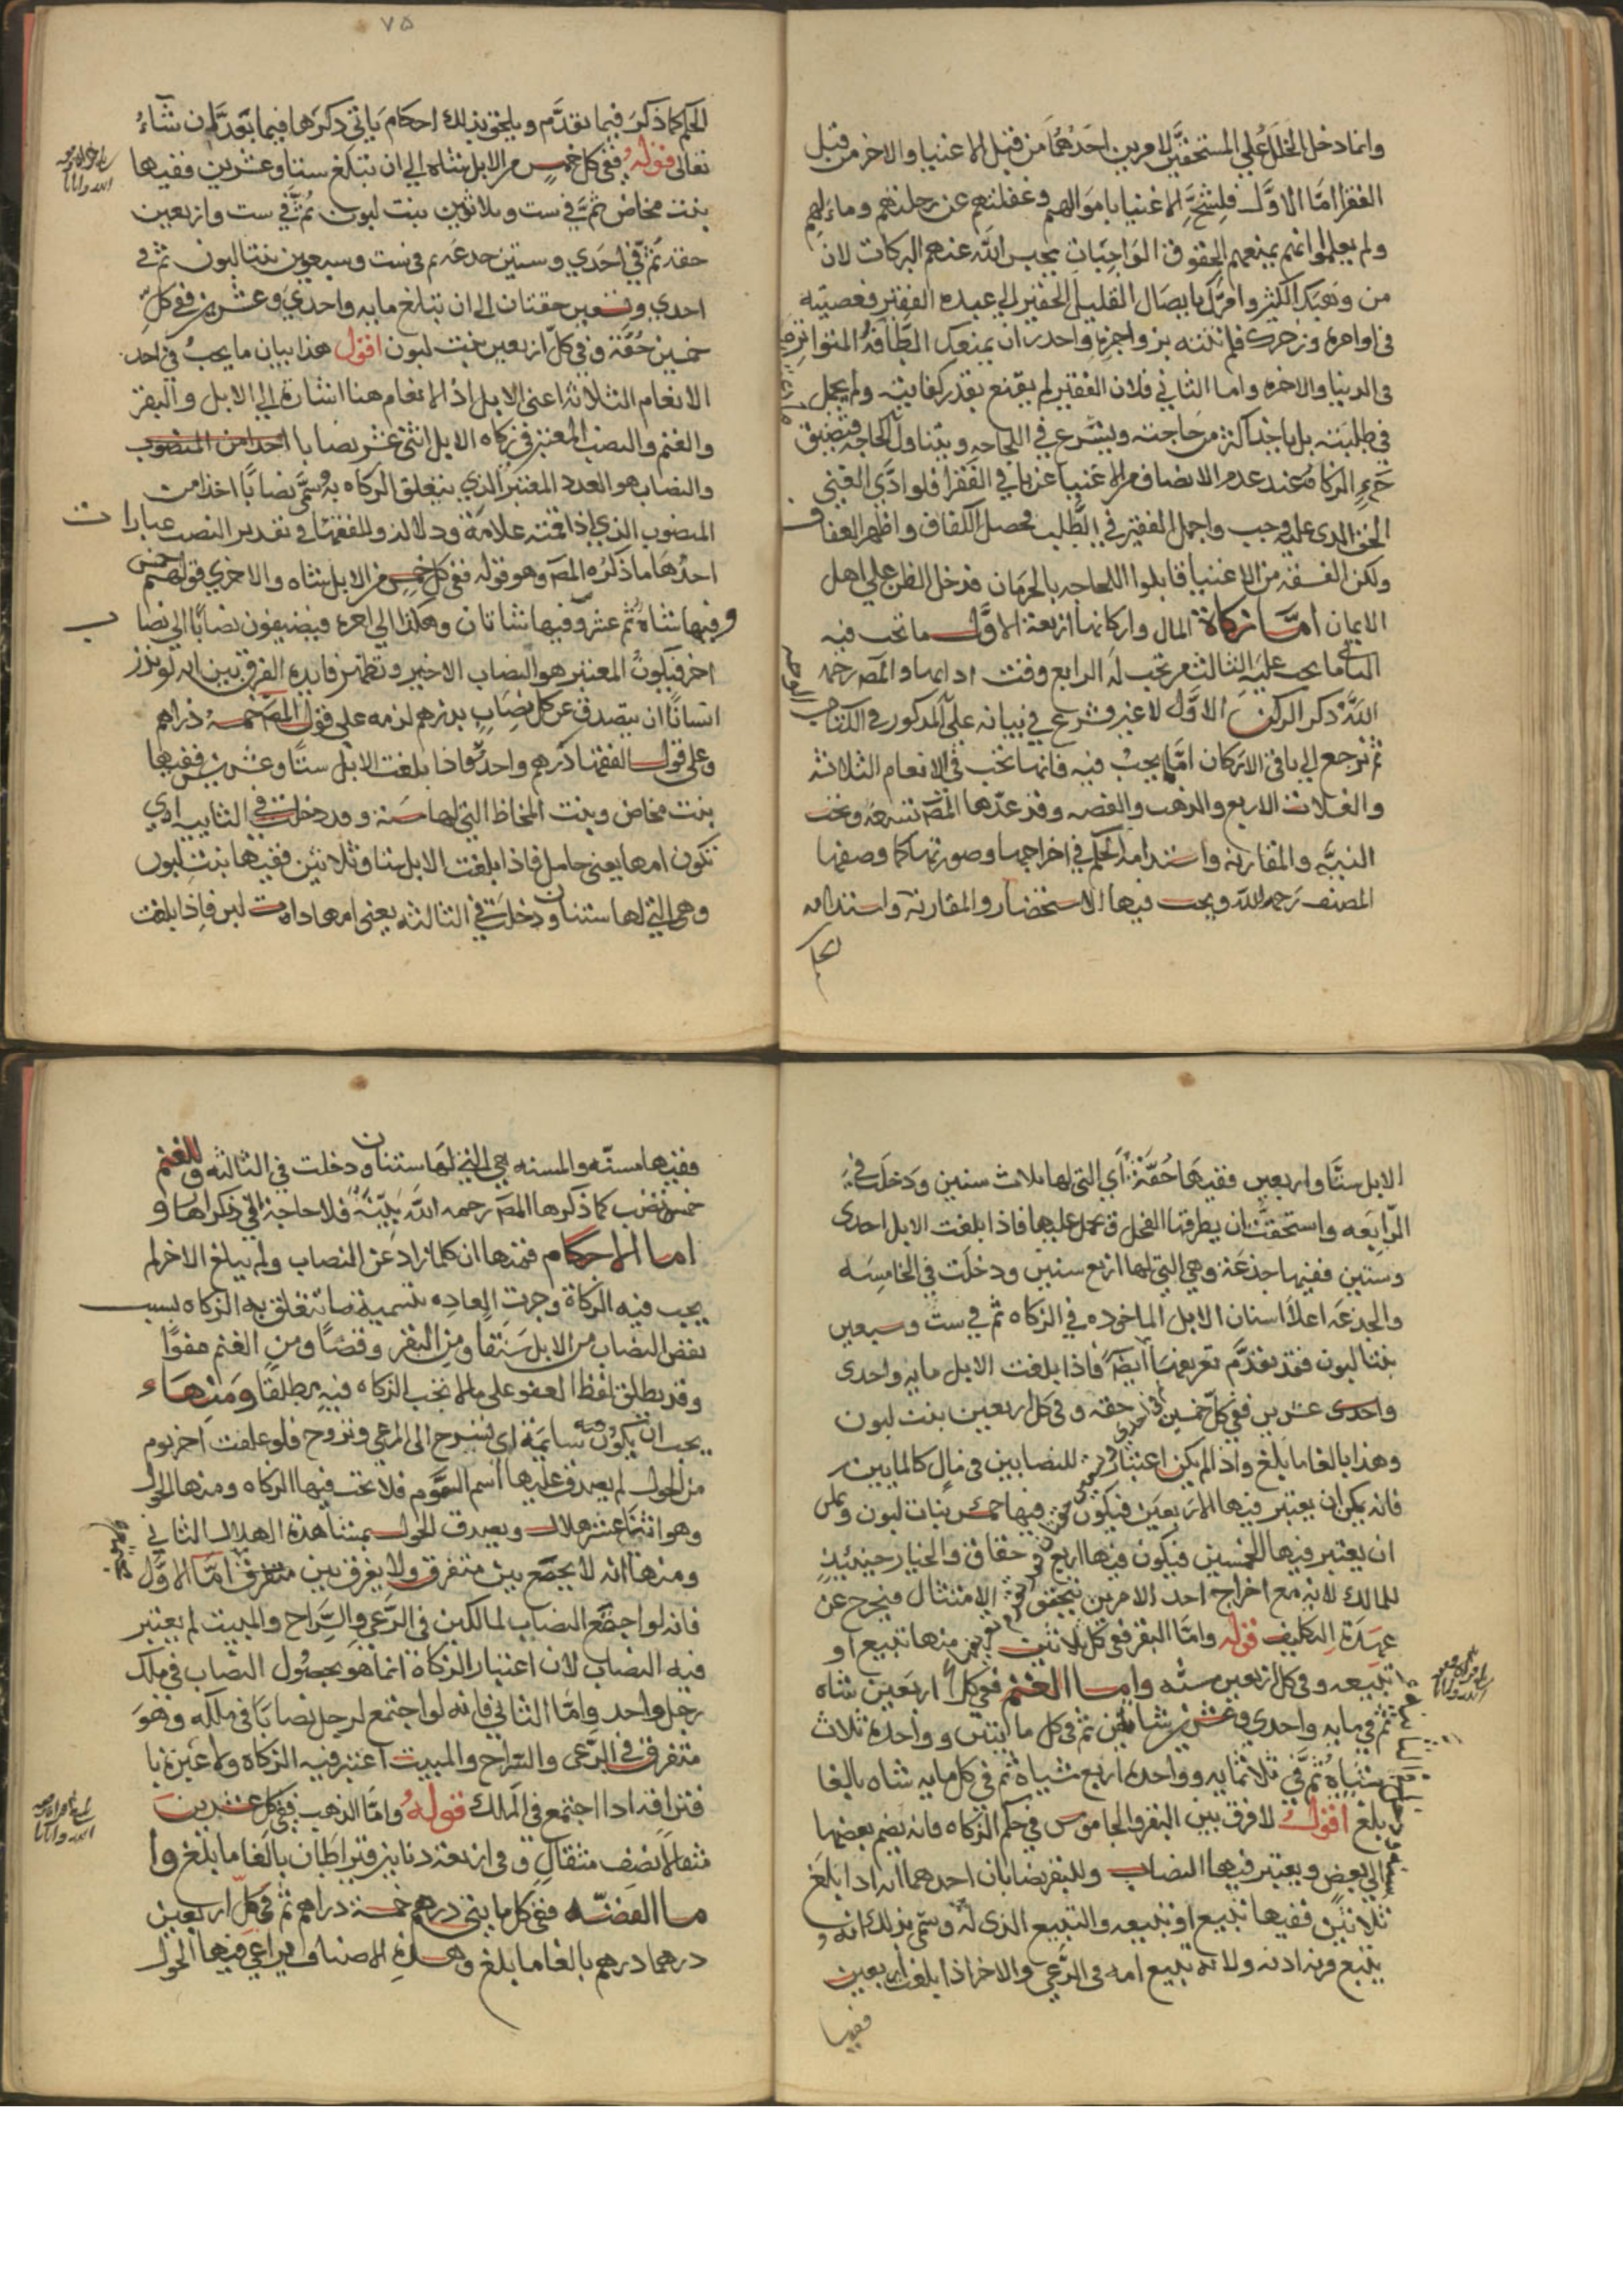 وانما دخل الخلل علي المستحقين لامرين احدهما من قبل الاغنيا والاخر من قبل
الفقرا اما الاول فلشح الاغنيا باموالهم وغفلتهم عن رحلتهم ومالهم
ولم يعلموا انهم بمنعهم الحقوق الواجبات يحبس الله عنهم البركات لان
من وهبك الكثير وامرك بايصال القليل الحقير الي عبيده الفقير فعصيته
في اوامره وزجرك فلم تنته بزواجره واحدر ان يمنعك الطافه المتواتره
في الدنيا والاخره واما الثاني فلان الفقير لم يقنع بقدر كفايته ولم يجمل
في طلبته بل ياخذ اكثر من حاجته ويشرع في اللجاجه ويتناول للحاجه فتضيق
الحق الدي عليه وجب واجمل الفقير في الطلب محصل الكفاف واظهر العفاف
ولكن الفسقه من الاغنيا قابلوا اللجاجه بالحرمان فدخل الظن علي اهل
الايمان اما زكاة المال واركانها اربعة الاول ما تجب فيه
الثاني ما يجب عليه الثالث من تجب له الرابع وقت ادايها والمص رحمه
الله ذكر الركن الاول لا غير فشرع في بيانه علي المدكور في الكتاب
ثم نرجع الي باقي الاركان اما ما يجب فيه فانها تجب في الانعام الثلاثه
والغلات الاربع والذهب والفضه وقد عدها المص تسعة وتجب
النيه والمقارنة واستدامة الحكم في اخراجها وصورتها كما وصفها
المصنف رحمه الله ويجب فيها الاستحضار والمقارنة واستدامه
الحكم
٧٥
الحكم كما ذكر فيما تقدم ويلحق بذلك احكام ياتي ذكرها فيما بعد ان شاء
تعالى قوله ففي كل خمس من الابل شاه الي ان تبلغ ستا وعشرين ففيها
بنت مخاض ثم في ست وثلاثين بنت لبون ثم في ست واربعين
حقه ثم في احدي وستين جدعه ثم في ست وسبعين بنتا لبون ثم في
احدي وتسعين حقتان الي ان تبلغ مايه واحدي وعشرين ففي كل
خمسين حقة وفي كل اربعين بنت لبون اقول هذا بيان ما يجب في احد
الانعام الثلاثة اعني الابل اذ الانعام هنا اشارة الي الابل والبقر
والغنم والنصب المعتبر في زكاه الابل اثنى عشر نصابا احدا من المنصوب
والنصاب هو العدد المعتبر الذي يتعلق الزكاه به وسمى نصابا اخذا من
المنصوب الذي اذا قمته علامة ودلالة وللفقها في تقدير النصب عبارات
احدها ما ذكره المص وهو قوله ففي كل خمس من الابل شاه والاخري قولهم خمس
وفيها شاة ثم عشر وفيها شاتان وهكذا الي اخره فيضيفون نصابا الي نصاب
اخر فيكون المعتبر هو النصاب الاخير وتظهر فايده الفرق بين انه لو نذر
انسانا ان يتصدق عن كل نصاب بدرهم لزمه علي قول المص خمسة دراهم
وعلى قول الفقها درهم واحد فاذا بلغت الابل ستا وعشرين ففيها
بنت مخاض وبنت المخاظ التي لها سنة وقد دخلت في الثانيه اي
تكون امها يعني حامل فاذا بلغت الابل ستا وثلاثين ففيها بنت لبون
وهي التي لها سنتان ودخلت في الثالثه يعني امها ذات لبن فاذا بلغت
الابل ستا واربعين ففيها حقة اي التي لها ثلاث سنين ودخلت في
الرابعه واستحقت ان يطرقها الفحل او يحمل عليها فاذا بلغت الابل احدى
وستين ففيها جذعة وهي التي لها اربع سنين ودخلت في الخامسه
والجدعه اعلا اسنان الابل الماخوده في الزكاه ثم في ست وسبعين
بنتا لبون فقد تقدم تعريفها ايضا فاذا بلغت الابل مايه واحدى
واحدى عشرين ففي كل خمسين حقه وفي كل اربعين بنت لبون
وهذا بالغا ما بلغ واذا لم يكن اعتبار للنصابين في مال كالمايتين
فانه يمكن ان يعتبر فيها الاربعين فيكون فيها خمس بنات لبون ويمكن
ان يعتبر فيها الخمسين فيكون فيها اربع حقاق والخيار حينيذ
للمالك لانه مع اخراج احد الامرين يتحقق الامتثال فيخرج عن
عهدة التكليف قوله واما البقر ففي كل ثلاثين منها تبيع او
تبيعه وفي كل اربعين مسنه واما الغنم ففي كل اربعين شاه
ثم في مايه واحدي وعشرين شاتين ثم في كل مايتين وواحدة ثلاث
شياة ثم في ثلاثمايه وواحده اربع شياة ثم في كل مايه شاه بالغا
ما بلغ اقول لا فرق بين البقر والجاموس في حكم الزكاه فانه يضم بعضها
الي بعض ويعتبر فيها النصاب وللبقر نصابان احدهما انه اذا بلغ
ثلاثين ففيها تبيع او تبيعه والتبيع الذى له وسمي بذلك انه
يتبع قرنه اذنه ولانه تبيع امه في الرعي والاخر اذا بلغت اربعين
ففيها
ففيها مسنه والمسنه هي التي لها سنتان ودخلت في الثالثه وللغنم
خمس نصب كما ذكرها المص رحمه الله بينة فلا حاجة الي ذكرها و
اما الاحكام فمنها ان كلما زاد عن النصاب ولم يبلغ الاخر لم
يجب فيه الزكاة وجرت العاده بتسمية ما لا تتعلق به الزكاه بسبب
نقص النصاب من الابل شنقا ومن البقر وقصا ومن الغنم عفوا
وقد يطلق لفظ العفو على ما لا تجب الزكاه فيه مطلقا ومنها
يجب ان يكون سايمة اي تسرح الى المرعي وتروح فلو علفت اخر يوم
من الحول لم يصدق عليها اسم السوم فلا تجب فيها الزكاه ومنها الحول
وهو اثنا عشر هلالا ويصدق الحول بمشاهدة الهلال الثاني
ومنها انه لا يجمع بين متفرق ولا يفرق بين متفرق اما الاول
فانه لو اجتمع النصاب لمالكين في الرعي والراح والمبيت لم يعتبر
فيه النصاب لان اعتبار الزكاة انما هو بحصول النصاب في ملك
رجل واحد واما الثاني فانه لو اجتمع لرجل نصابا في ملكه وهو
متفرق في الرعي والراح والمبيت اعتبر فيه الزكاه ولا عبرة با
فتراقه اذا اجتمع في المالك قوله واما الذهب ففي كل عشرين
مثقالا نصف مثقال وفي اربعة دنانير قيراطان بالغا ما بلغ وا
ما الفضه ففي كل مايتي درهم خمسة دراهم ثم في كل اربعين
درهما درهم بالغا ما بلغ وهذه الاصناف يراعي فيها الحول